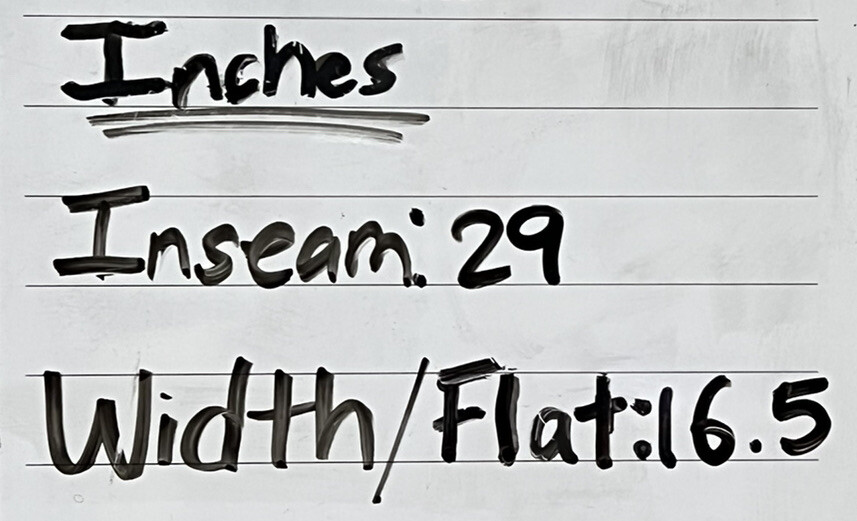 Inches
Inseam: 29
Width/Flat:16.5